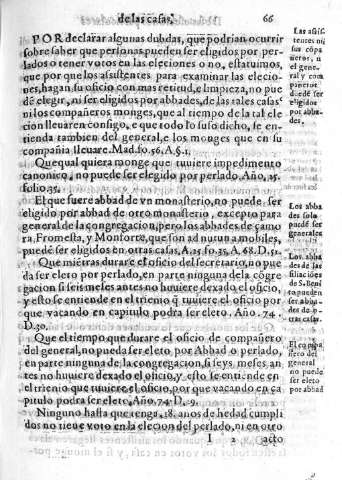 de las casas. 66
POR declarar algunas dubdas, que podrian ocurrir
sobre saber que personas pueden ser eligidos por per-
lados o tener votos en las eleciones o no, estatuimos,
que por que los assistentes para examinar las elecio-
nes, hagan su oficio con mas retitud, e limpieza, no pue
dē elegir, ni ser eligidos por abbades, de las tales casas
ni los compañeros monges, que al tiempo de la tal ele
cion lleuarẽ consigo, e que todo lo suso dicho, se en-
tienda tambien del general, e los monges que en su
compañia lleuare. Mad. fo. 56. A. §. 1.
Que qual quiera monge que tuuiere impedimento
canonico, no puede ser eligido por perlado. Año, 25.
folio. 35.
El que fuere abbad de vn monasterio, no puede ser
eligido por abbad de otro monasterio, excepto para
general de la congregacion, pero los abbades de çamo
ra, Fromesta, y Monforte, que son ad nutun amobiles,
puedē ser eligidos en otras casas, A. 25. fo. 35. A. 68. D. 51.
Que miētras durare el oficio del secretario, no pue
da ser eleto por perlado, en parte ninguna dela cōgre
gacion si seis meses antes no huuiere dexado el oficio,
y esto se entiende en el trienio q̃ tuuiere el oficio por
que vacando en capitulo podra ser eleto. Año. 74
D. 30.
Que el tiempo que durare el oficio de compañero
del general, no pueda ser eleto, por Abbad o perlado,
en parte ninguna de la congregacion, si seys meses an
tes no huuiere dexado el oficio, y esto se entiende en
el trienio que tuuiere el oficio, por que vacando en ca
pitulo podra ser eleto. Año. 74. D. 9.
Ninguno hasta que tenga 18. años de hedad cumpli
dos no tiene voto en la elecion del perlado, ni en otro
I 2 acto
Los assis-
tentes ni
sus cōpa
ñeros, n
el gene-
ral y com
pañeros
puedē ser
eligidos
por abba-
des.
Los abba
des solo
puedē ser
generales
Los abba
des de las
filiacio-
nes
puedē ser
El compa
ñero del
general
no puede
ser eleto
por abbad